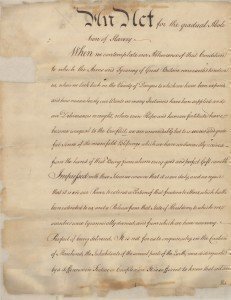 An Act for the gradual Abol
ition of Slavery
When we contemplate our Abhorence of that Condition
to which the Arms and Tyranny of Great Britain were exerted to reduce
us, when we look back on the Variety of Dangers to which we have been exposed,
and how miraculously our Wants in many Instances have been supplied and
our Deliverances wrought, when even Hope and human fortitude have
become unequal to the Conflict, we are unavoidably led to a serious and grate
ful Sense of the manifold Blessings which we have undeservedly received
from the hand of that Being from whom every good and perfect Gift cometh
Impressed with these Ideas we conceive that it is our duty, and we rejoice
that it is in our Power, to extend a Portion of that freedom to others, which hath
been extended to us, and a Release from that State of Thraldom, to which we
ourselves were tyrannically doomed, and from which we have now every
Prospect of being delivered. It is not for us to enquire, why, in the Creation
of Mankind, the Inhabitants of the several parts of the Earth, were distinguished
by a difference in Feature or Complexion. It is sufficient to know that all are